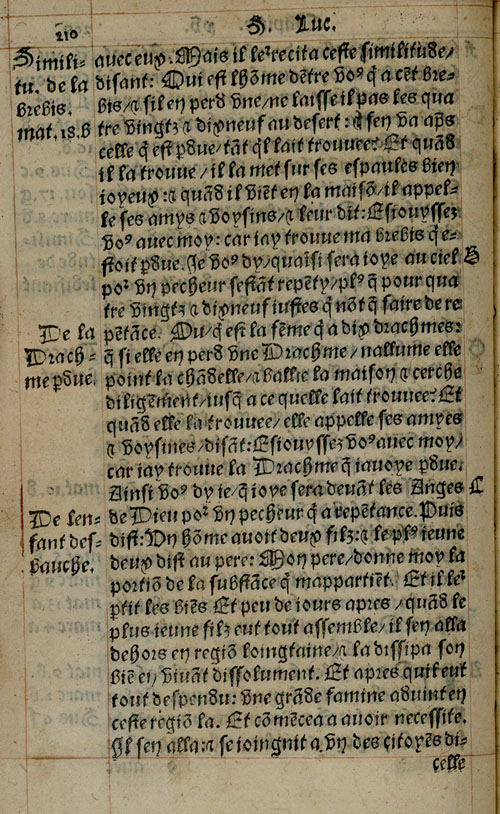 210
S. Luc.
Simili-
tu. de la
brebis.
mat. 18. b
auec eux. Mais il leʳ recita ceste similitude/
disant: Qui est lhõme dẽtre voꝰ q̃ a cẽt bre-
bis/ ⁊ sil en perd vne/ne laisse il pas les qua
tre vingtz ⁊ dixneuf au desert: ⁊ sen va apṣ
celle q̃ est ꝑdue/tãt q̃l lait trouuee? Et quãd
il la trouue/ il la met sur ses espaules bien
ioyeux: ⁊ quãd il viẽt en la maisõ/ il appel-
le ses amys ⁊ voysins/⁊ leur dit: Esiouyssez
voꝰ auec moy: car iay trouue ma brebis q̃ e-
stoit ꝑdue. Je voꝰ dy/quaisi sera ioye au ciel
poʳ vn pecheur sestãt repẽty/plꝰ q̃ pour qua
tre vingtz ⁊ dixneuf iustes q̃ nõt q̃ faire de re
pẽtãce. Ou/q̃ est la fẽme q̃ a dix drachmes:
q̃ si elle en perd vne Drachme/ nallume elle
point la chãdelle/⁊ ballie la maison ⁊ cerche
diligẽment/iusq̃ a ce quelle lait trouuee? Et
quãd elle la trouuee/elle appelle ses amyes
⁊ voysines/disãt: Esiouyssez voꝰ auec moy/
car iay trouue la Drachme q̃ iauoye ꝑdue.
Ainsi voꝰ dy ie/q̃ ioye sera deuãt les Anges
de Dieu poʳ vn pecheur q̃ a repẽtance. Puis
dist: Vn hõme auoit deux filz: ⁊ le plꝰ ieune
deux dist au pere: Mon pere/donne moy la
portiõ de la substãce q̃ mappartiẽt. Et il leʳ
ꝑtit les biẽs Et peu de iours apres/quãd le
plus ieune filz eut tout assemble/ il sen alla
dehors en regiõ loingtaine/⁊ la dissipa son
biẽ en viuãt dissolument. Et apres quil eut
tout despendu: vne grãde famine aduint en
ceste regiõ la. Et cõmẽcea a auoir necessite.
Il sen alla: ⁊ se ioingnit a vn des citoyẽs di-
celle
B
De la
Drach-
me ꝑdue.
C
De len-
fant des-
bauche.